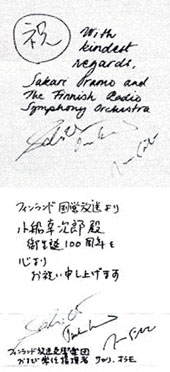 祝
With
kindest
regards,
Sakari Oramo and
The Finnish Radio
Symphony Orchestra
フィンランド国営放送より
小船幸次郎殿
御生誕100周年を
心より
お祝い申し上げます
フィンランド放送交響楽団
および常任指揮者 サカリ・オラモ